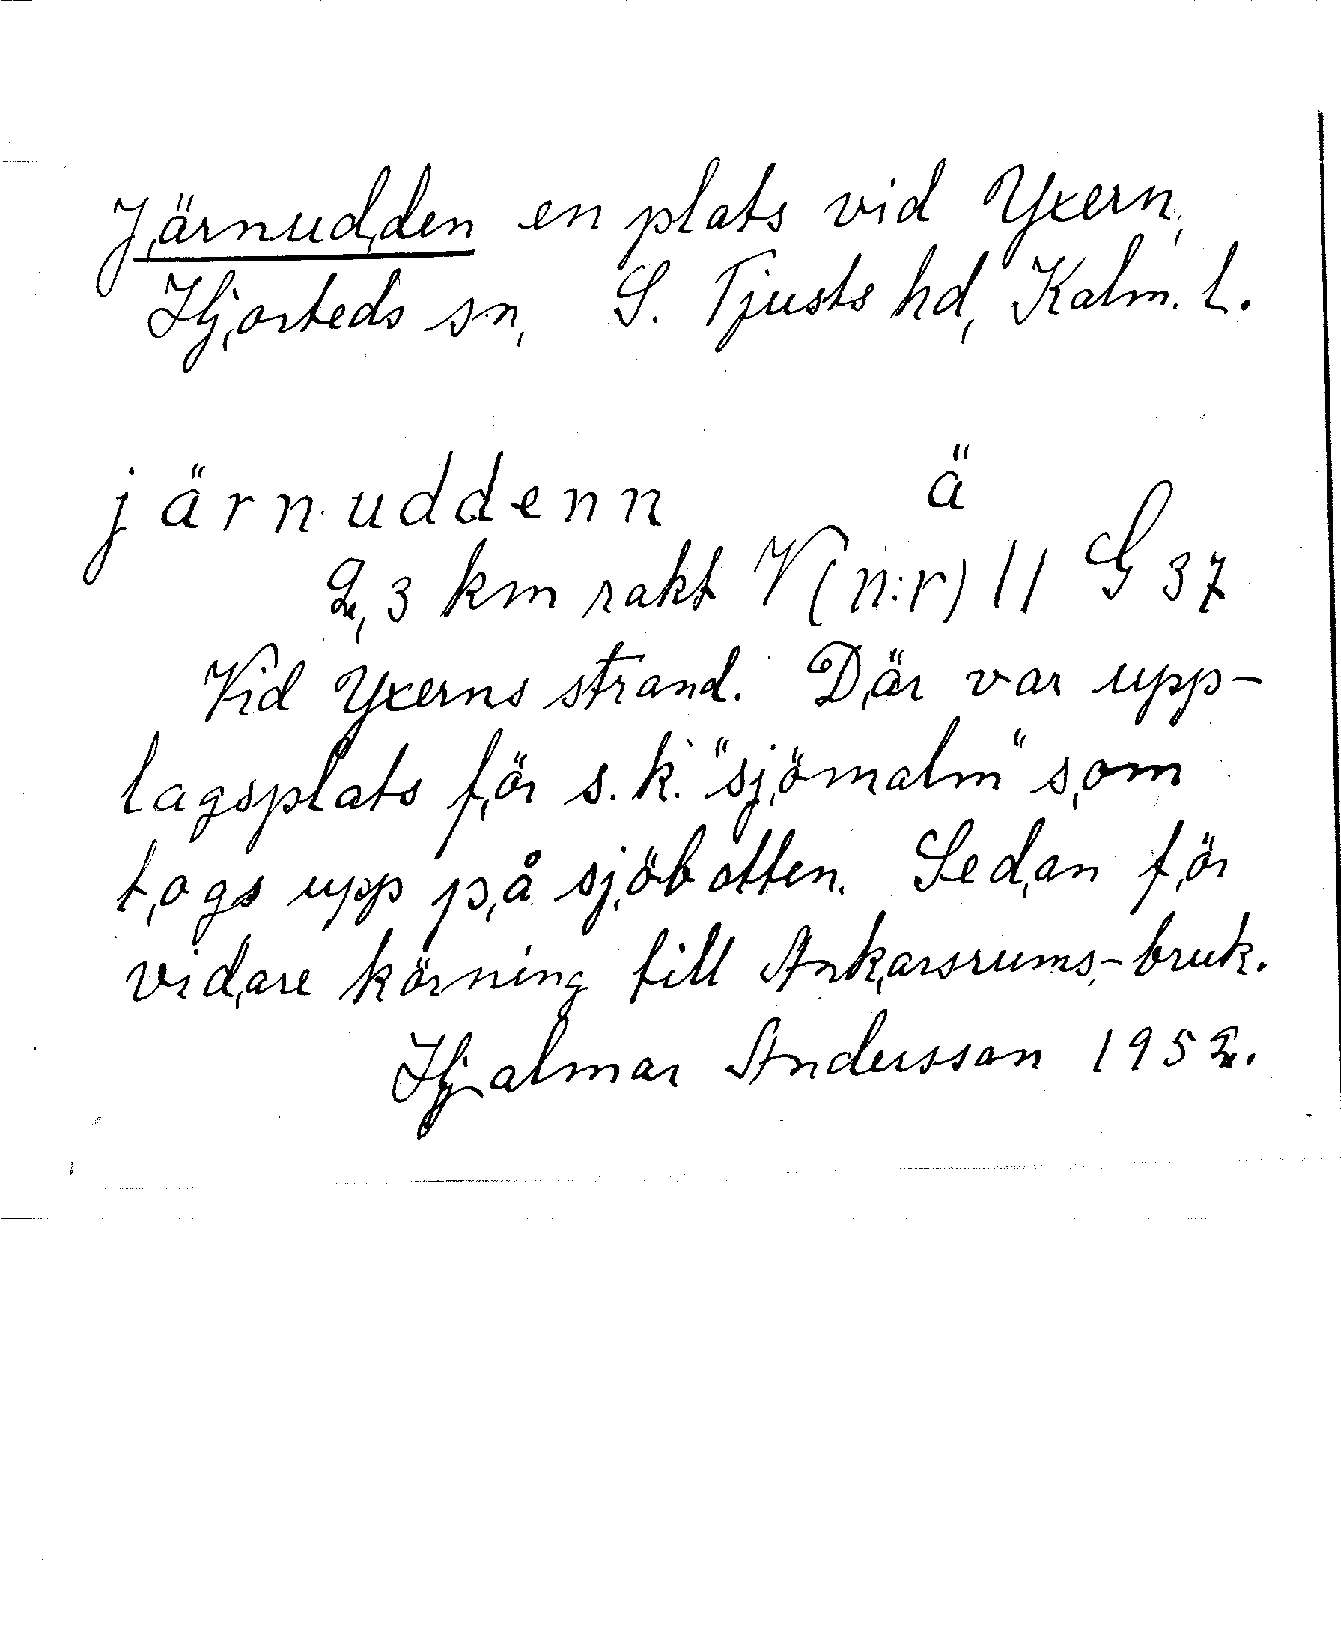 Järnudden en plats vid Yxern,
Hjorteds sn, S. Tjusts hd, Kalm. l.
järnuddenn ä
2,3 km rakt V (n:r) 11 G 37
Vid Yxerns strand. Där var upp-
lagsplats för s.k. "sjömalm" som
togs upp på sjöbotten. Sedan för
vidare körning till Ankarsrums-bruk.
Hjalmar Andersson 1952.